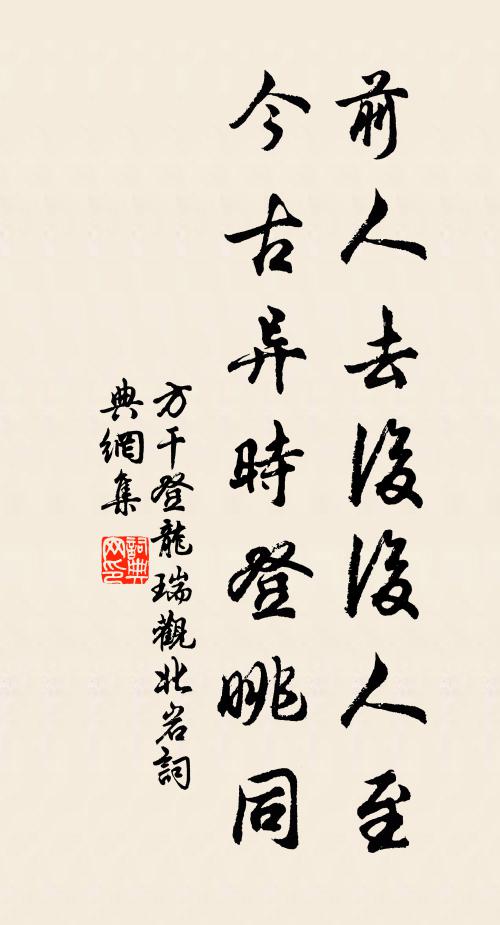 前人去後後人至
今古异時登眺同
方干登龍瑞觀北岩詞
典網集
詞典
网印